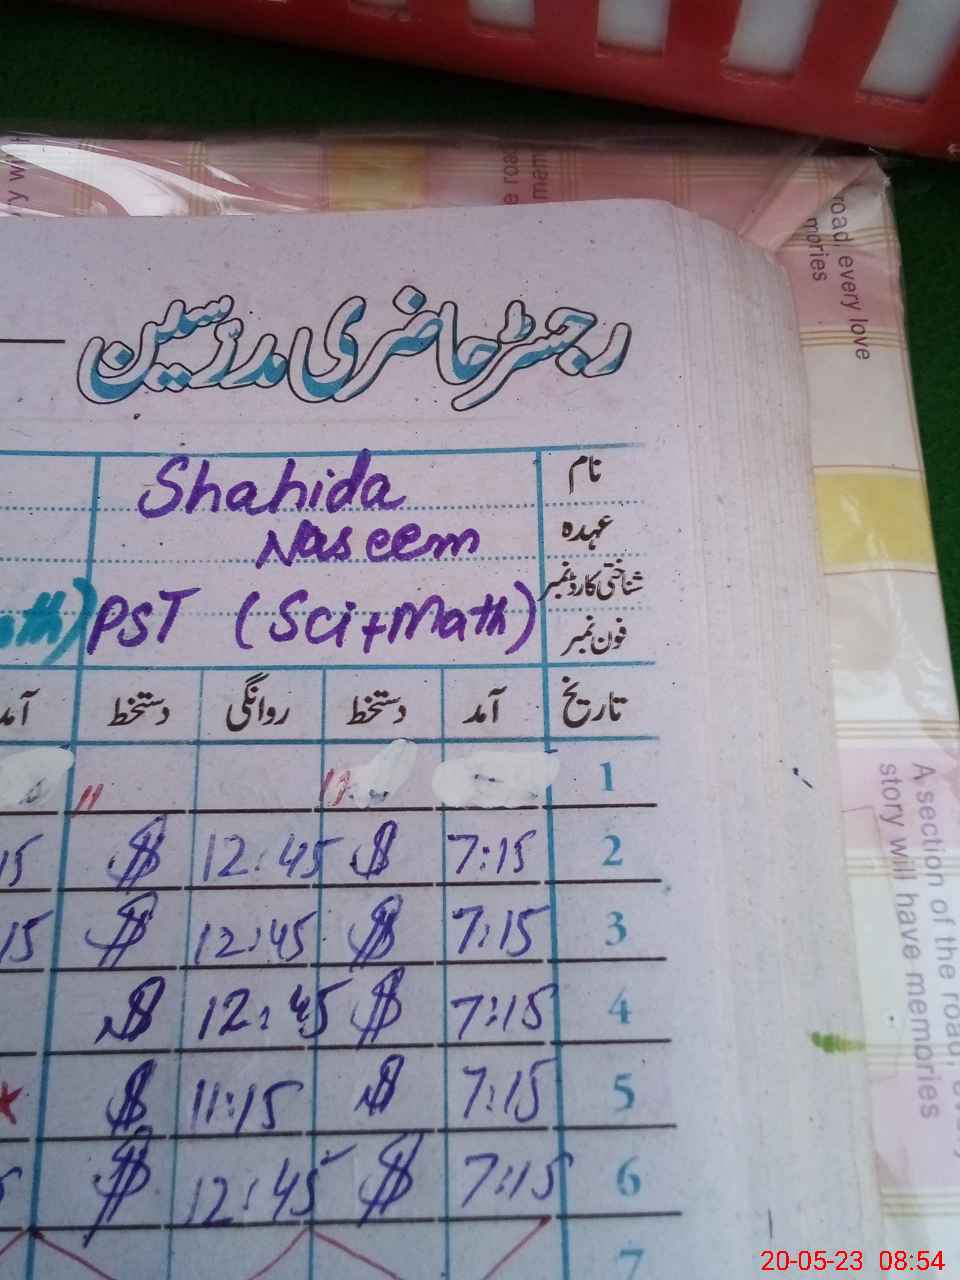 road, every love
mories
رجسٹر حاضری مدرسین
نام
Shahida
Naseem
عہدہ
شناختی کارڈ نمبر
PST (Sci+Math)
فون نمبر
تاریخ آمد دستخط روانگی دستخط آمد
1
2 7:15 12:45 15
3 7:15 12:45 15
4 7:15 12:45
5 7:15 11:15
6 7:15 12:45
7
A section of the road,
story will have memories
20-05-23 08:54